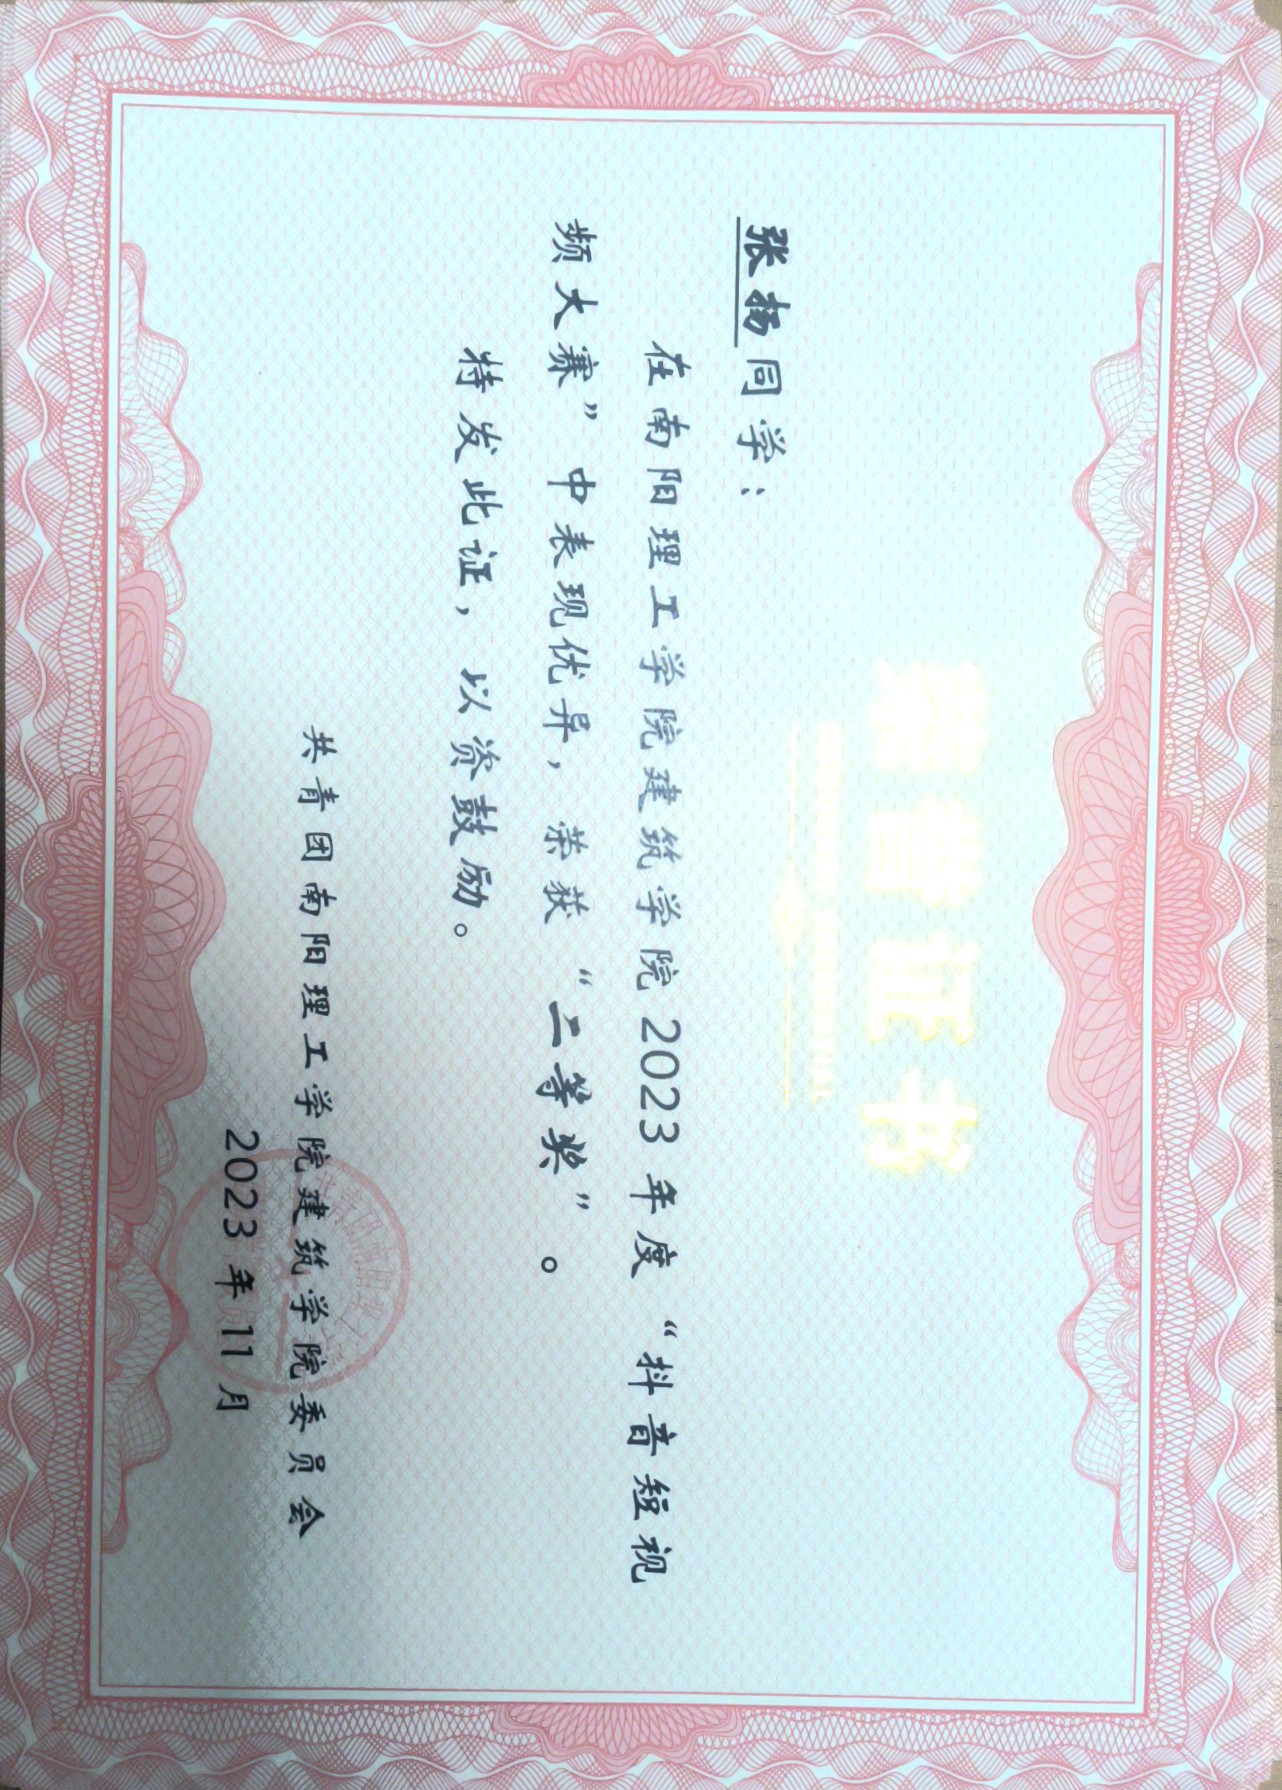 荣誉证书
张扬同学：
在南阳理工学院建筑学院2023年度“抖音短视
频大赛”中表现优异，荣获“二等奖”。
特发此证，以资鼓励。
共青团南阳理工学院建筑学院委员会
2023年11月